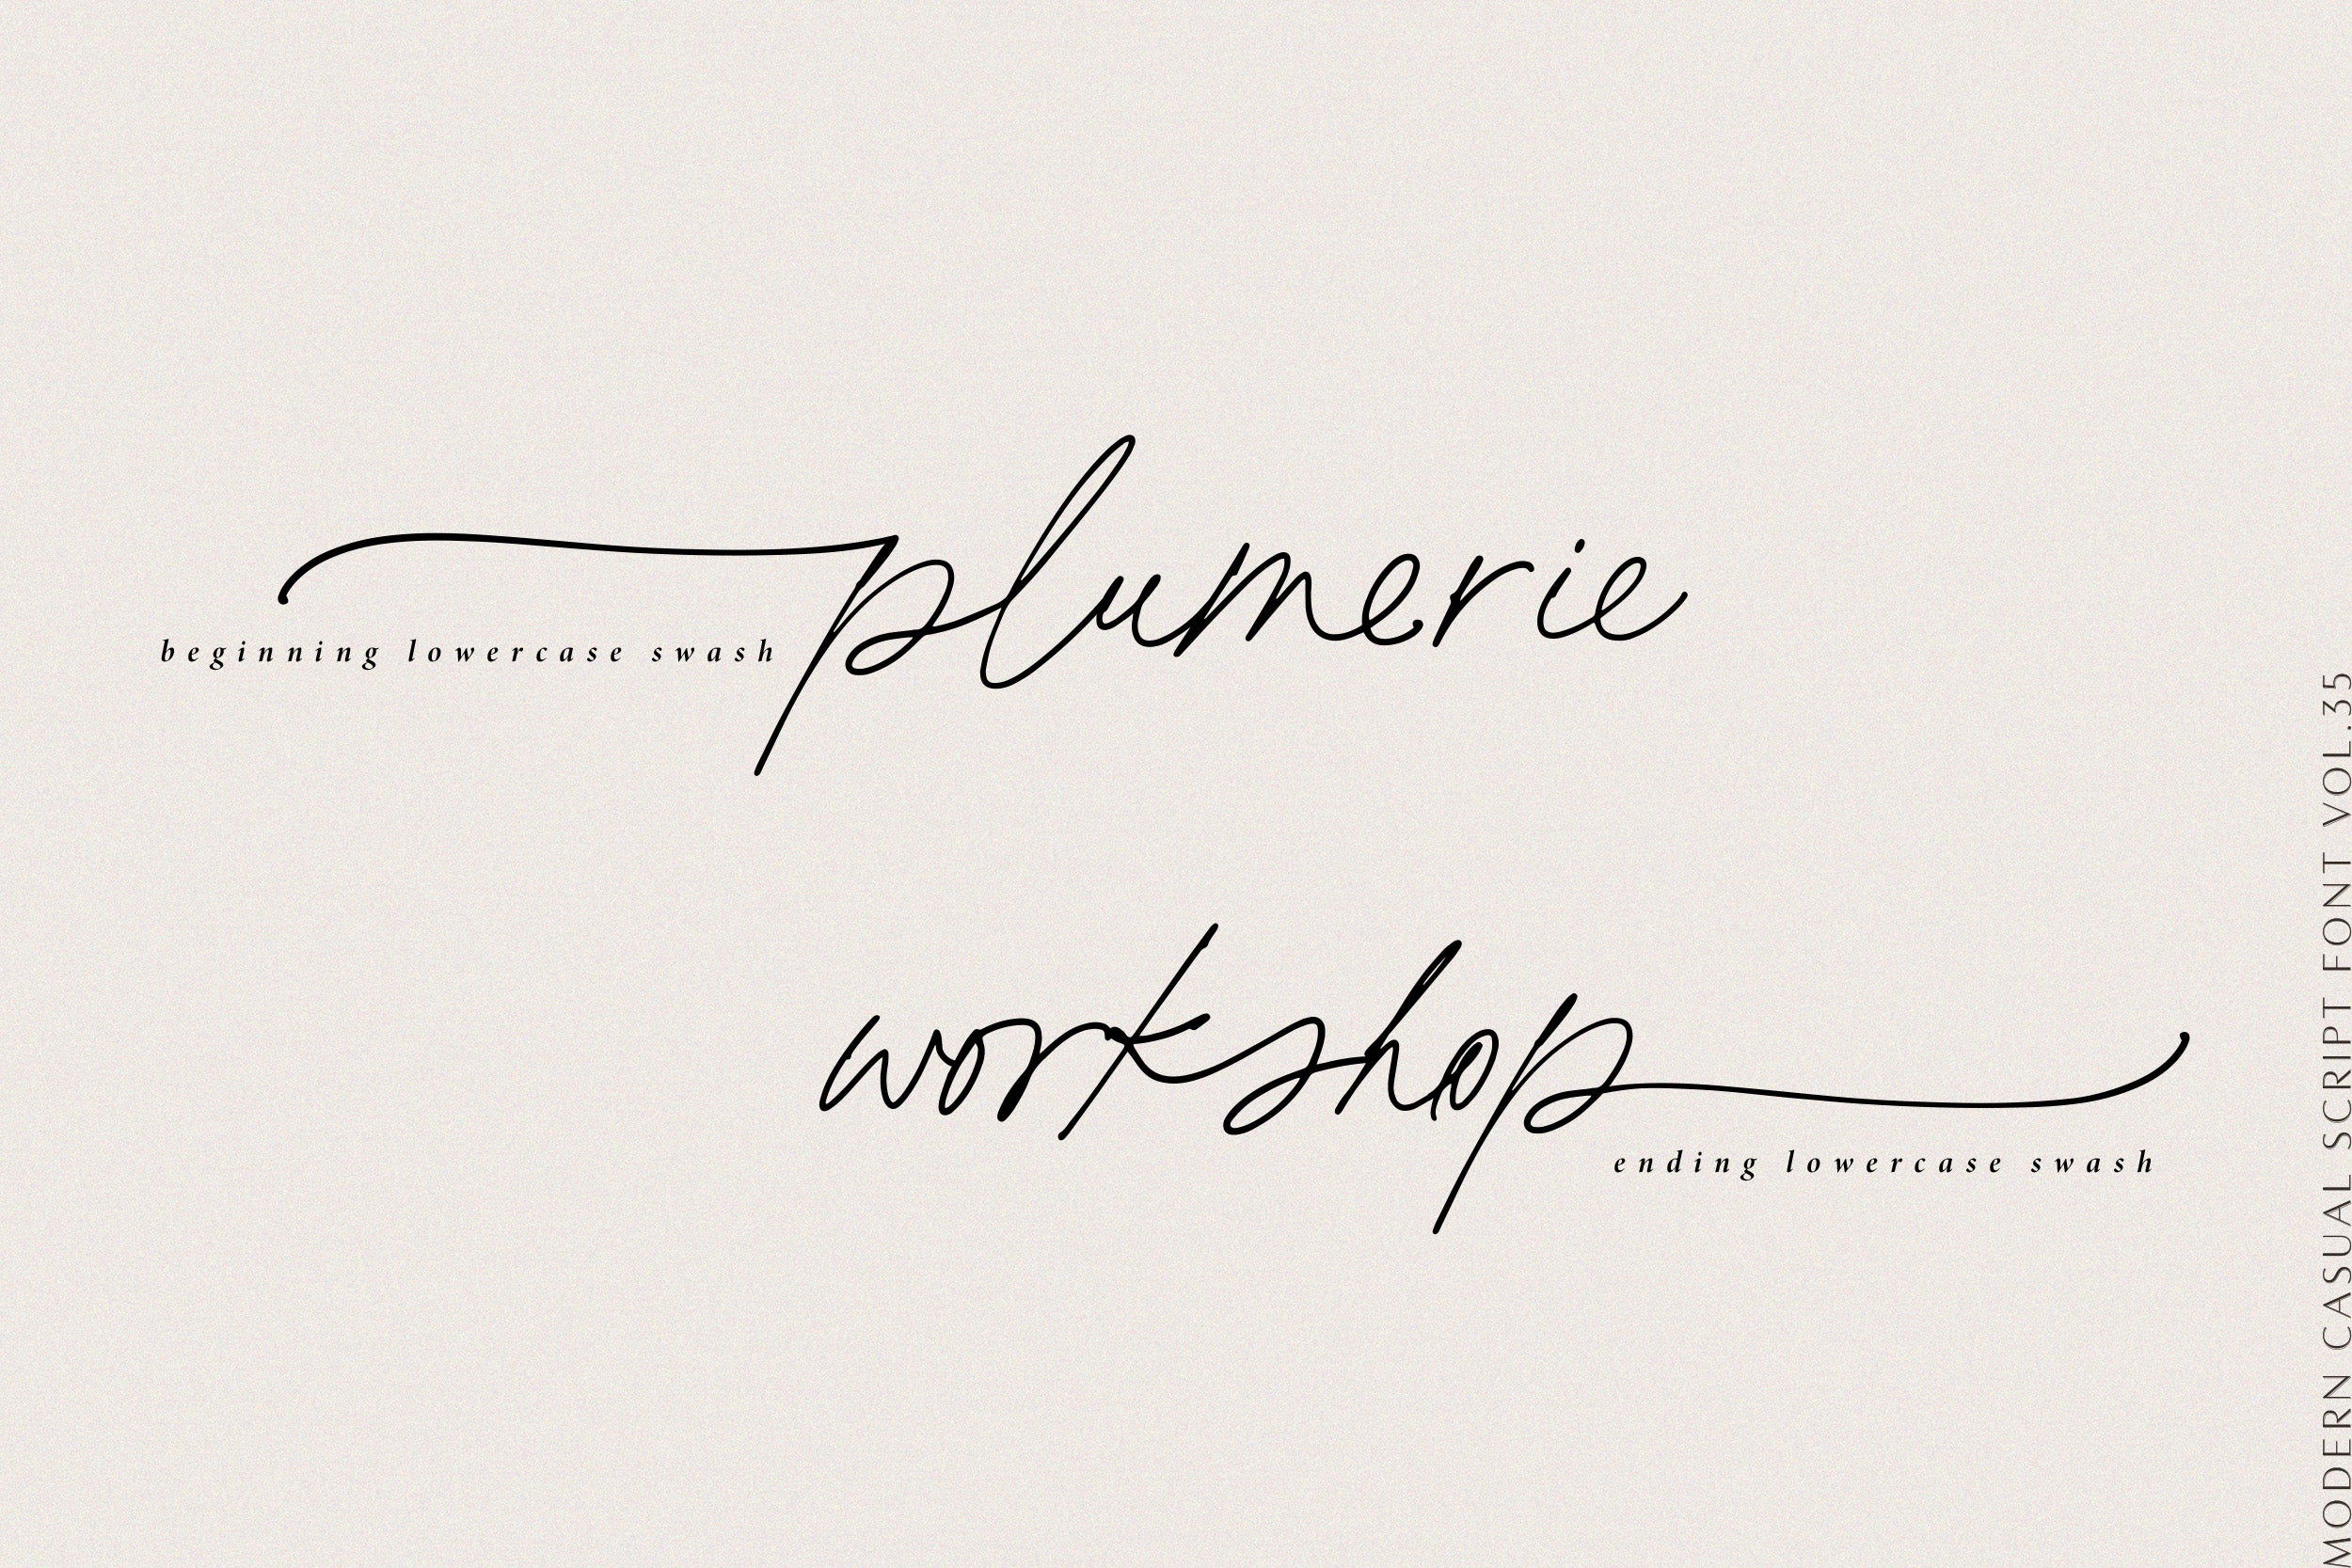 plumerie
beginning lowercase swash
workshop
ending lowercase swash
MODERN CASUAL SCRIPT FONT VOL.35